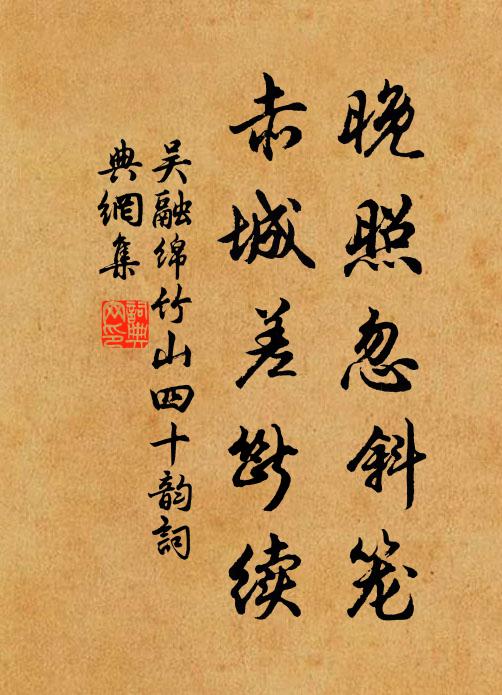 晚照忽斜笼
赤城差断续
吴融绵竹山四十韵词
典网集
词典网印